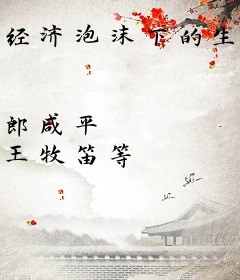 经济泡沫下的生
郎咸平
王牧笛等